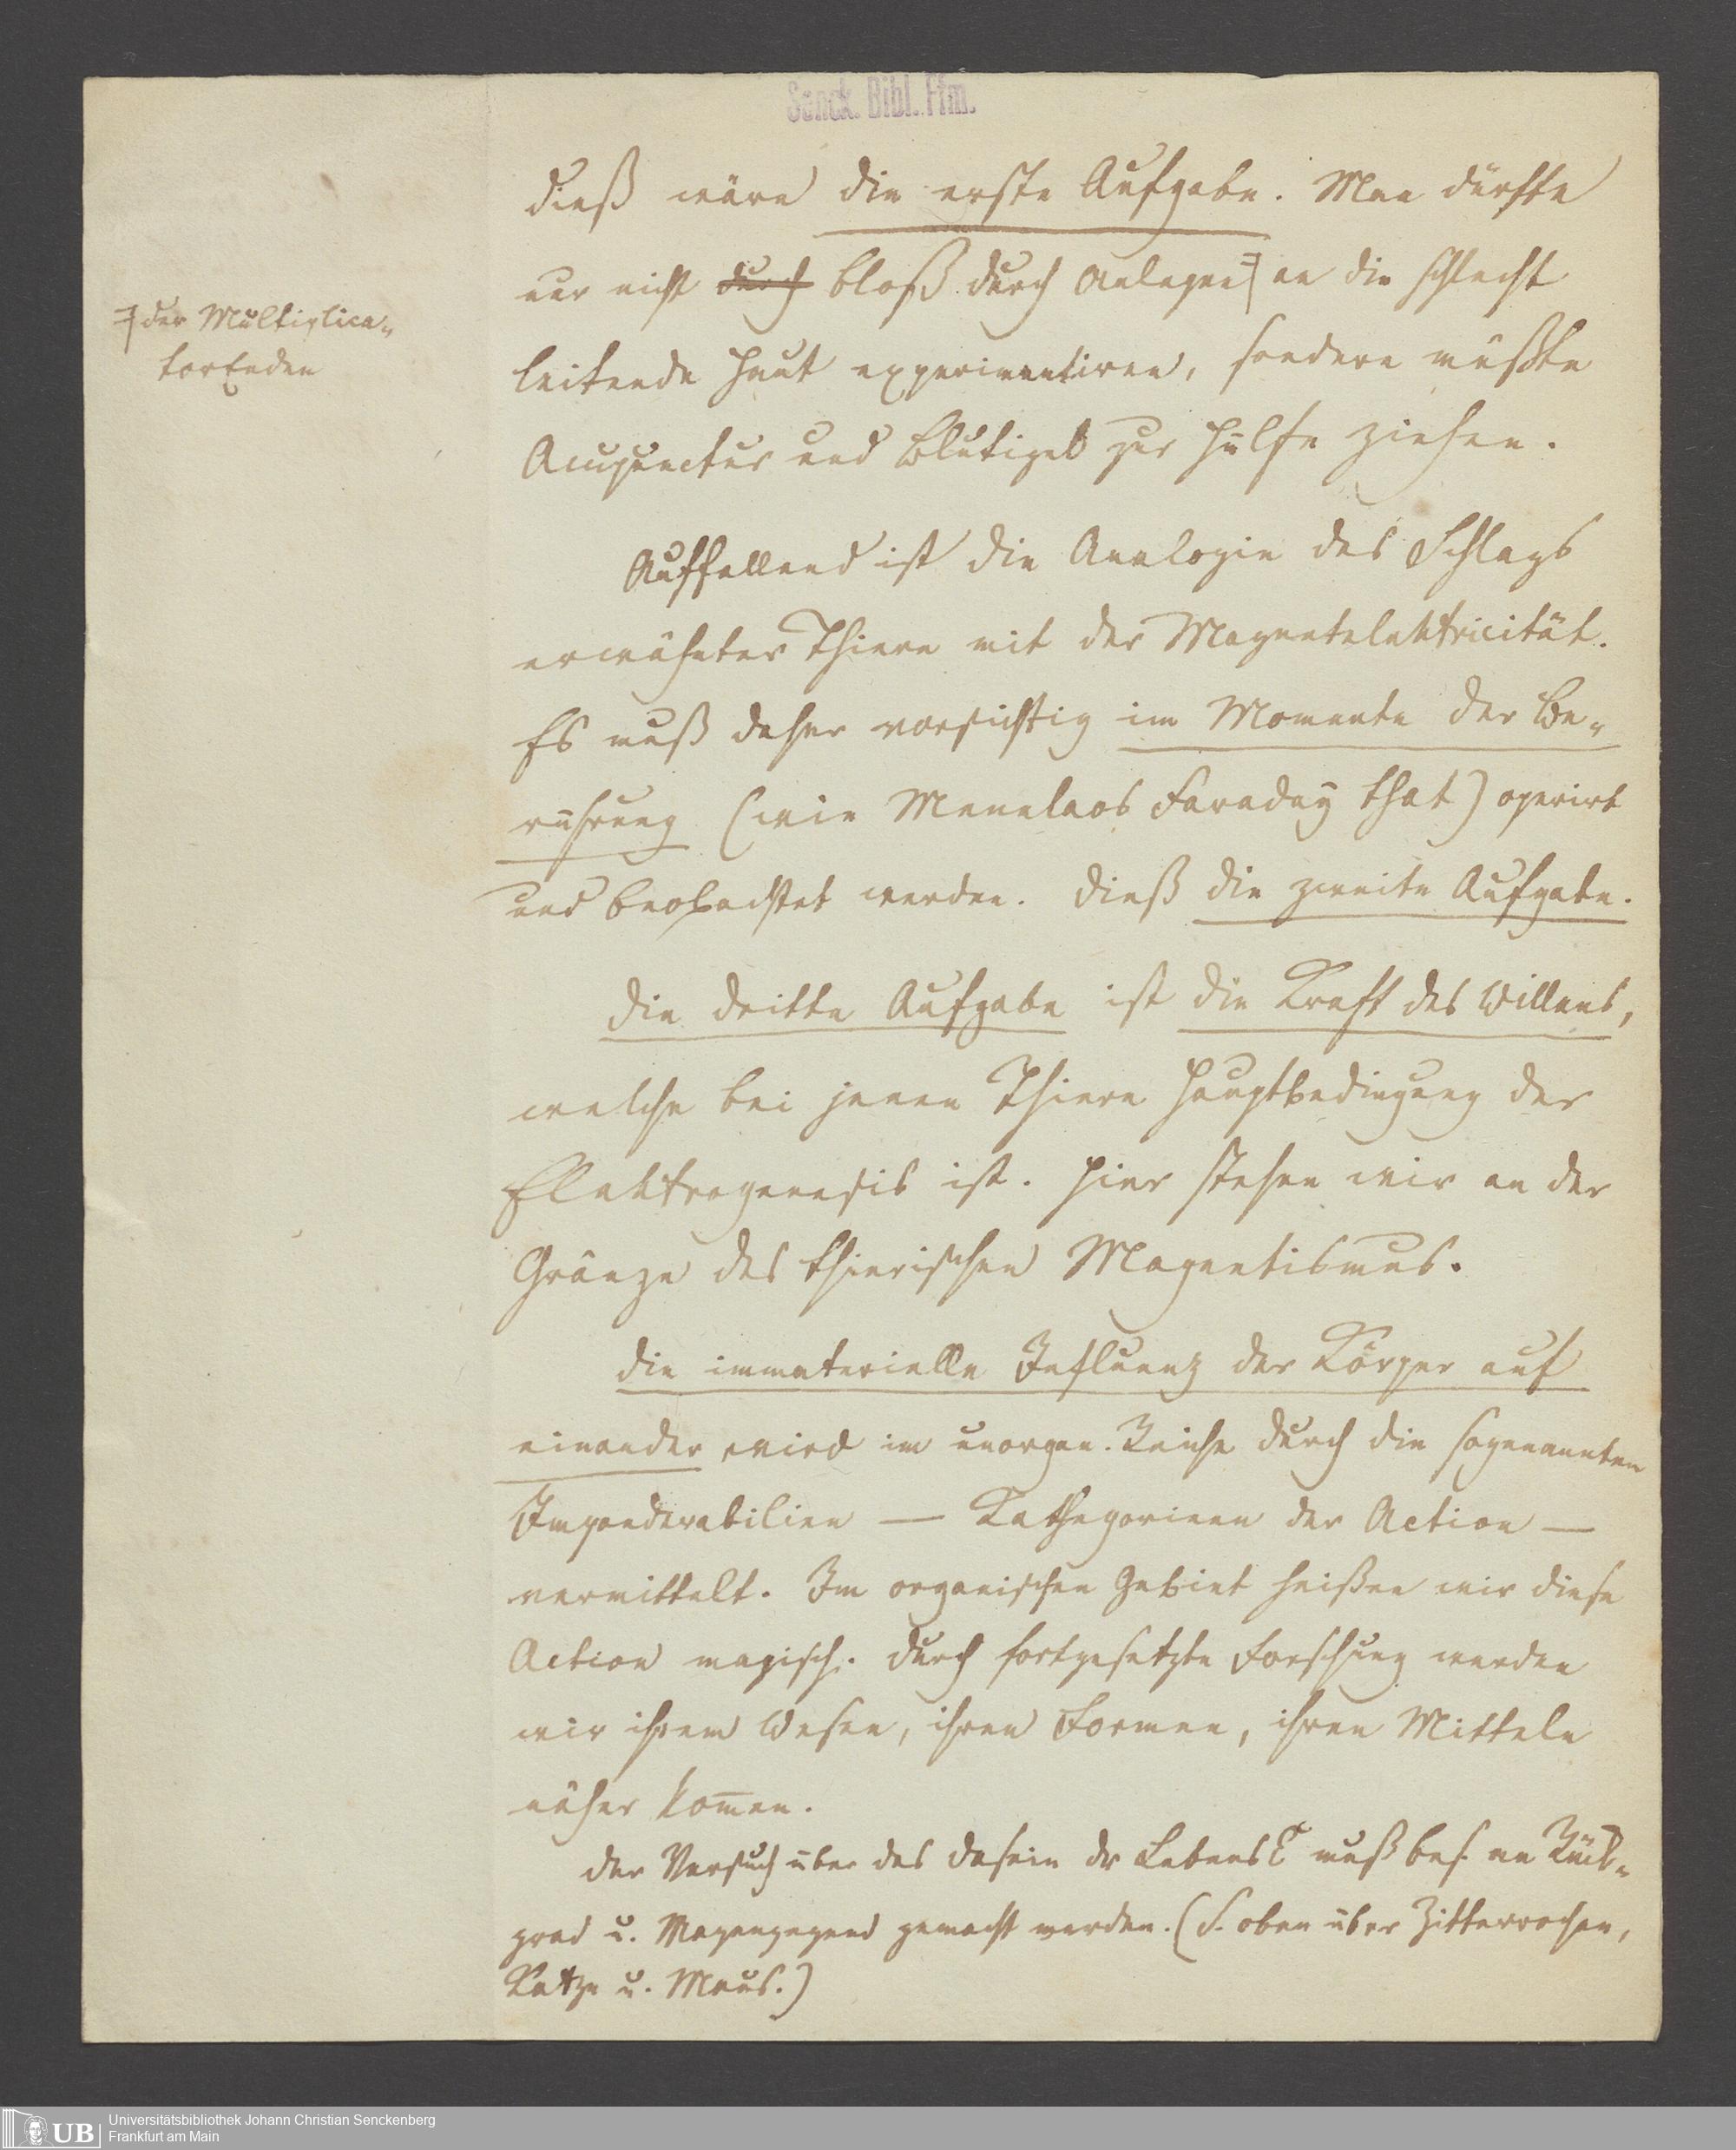 Senck. Bibl. Ffm.
dieß wäre die erste Aufgabe. Man dürfte
nur nicht durch bloß durch Anlegen⌉ an die schlecht
⌉ der Multiplica-
torEnden
leitende Haut experimentiren, sondern müßte
Acupunctur und Blutigel zur Hülfe ziehen.
Auffallend ist die Analogie des Schlags
erwähnter Thiere mit der Magnetelektricität.
Es muß daher vorsichtig im Momente der Be-
rührung (wie Menelaos Faraday that) operirt
und beobachtet werden. Dieß die zweite Aufgabe.
Die dritte Aufgabe ist die Kraft des Willens,
welche bei jenen Thieren Hauptbedingung der
Elektrogenesis ist. Hier stehen wir an der
Gränze des thierischen Magnetismus.
Die immaterielle Influenz der Körper auf
einander wird im unorgan. Reiche durch die sogenannten
Imponderabilien — Kathegorieen der Action —
vermittelt. Im organischen Gebiet heißen wir diese
Action magisch. Durch fortgesetzte Forschung werden
wir ihrem Wesen, ihren Formen, ihren Mitteln
näher kom̅en.
Der Versuch über das Dasein dr Lebens muß bes. an Rück-
grad u. Magengegend gemacht werden. (S. oben über Zitterrochen,
Katze u. Maus.)
UB
Universitätsbibliothek Johann Christian Senckenberg
Frankfurt am Main